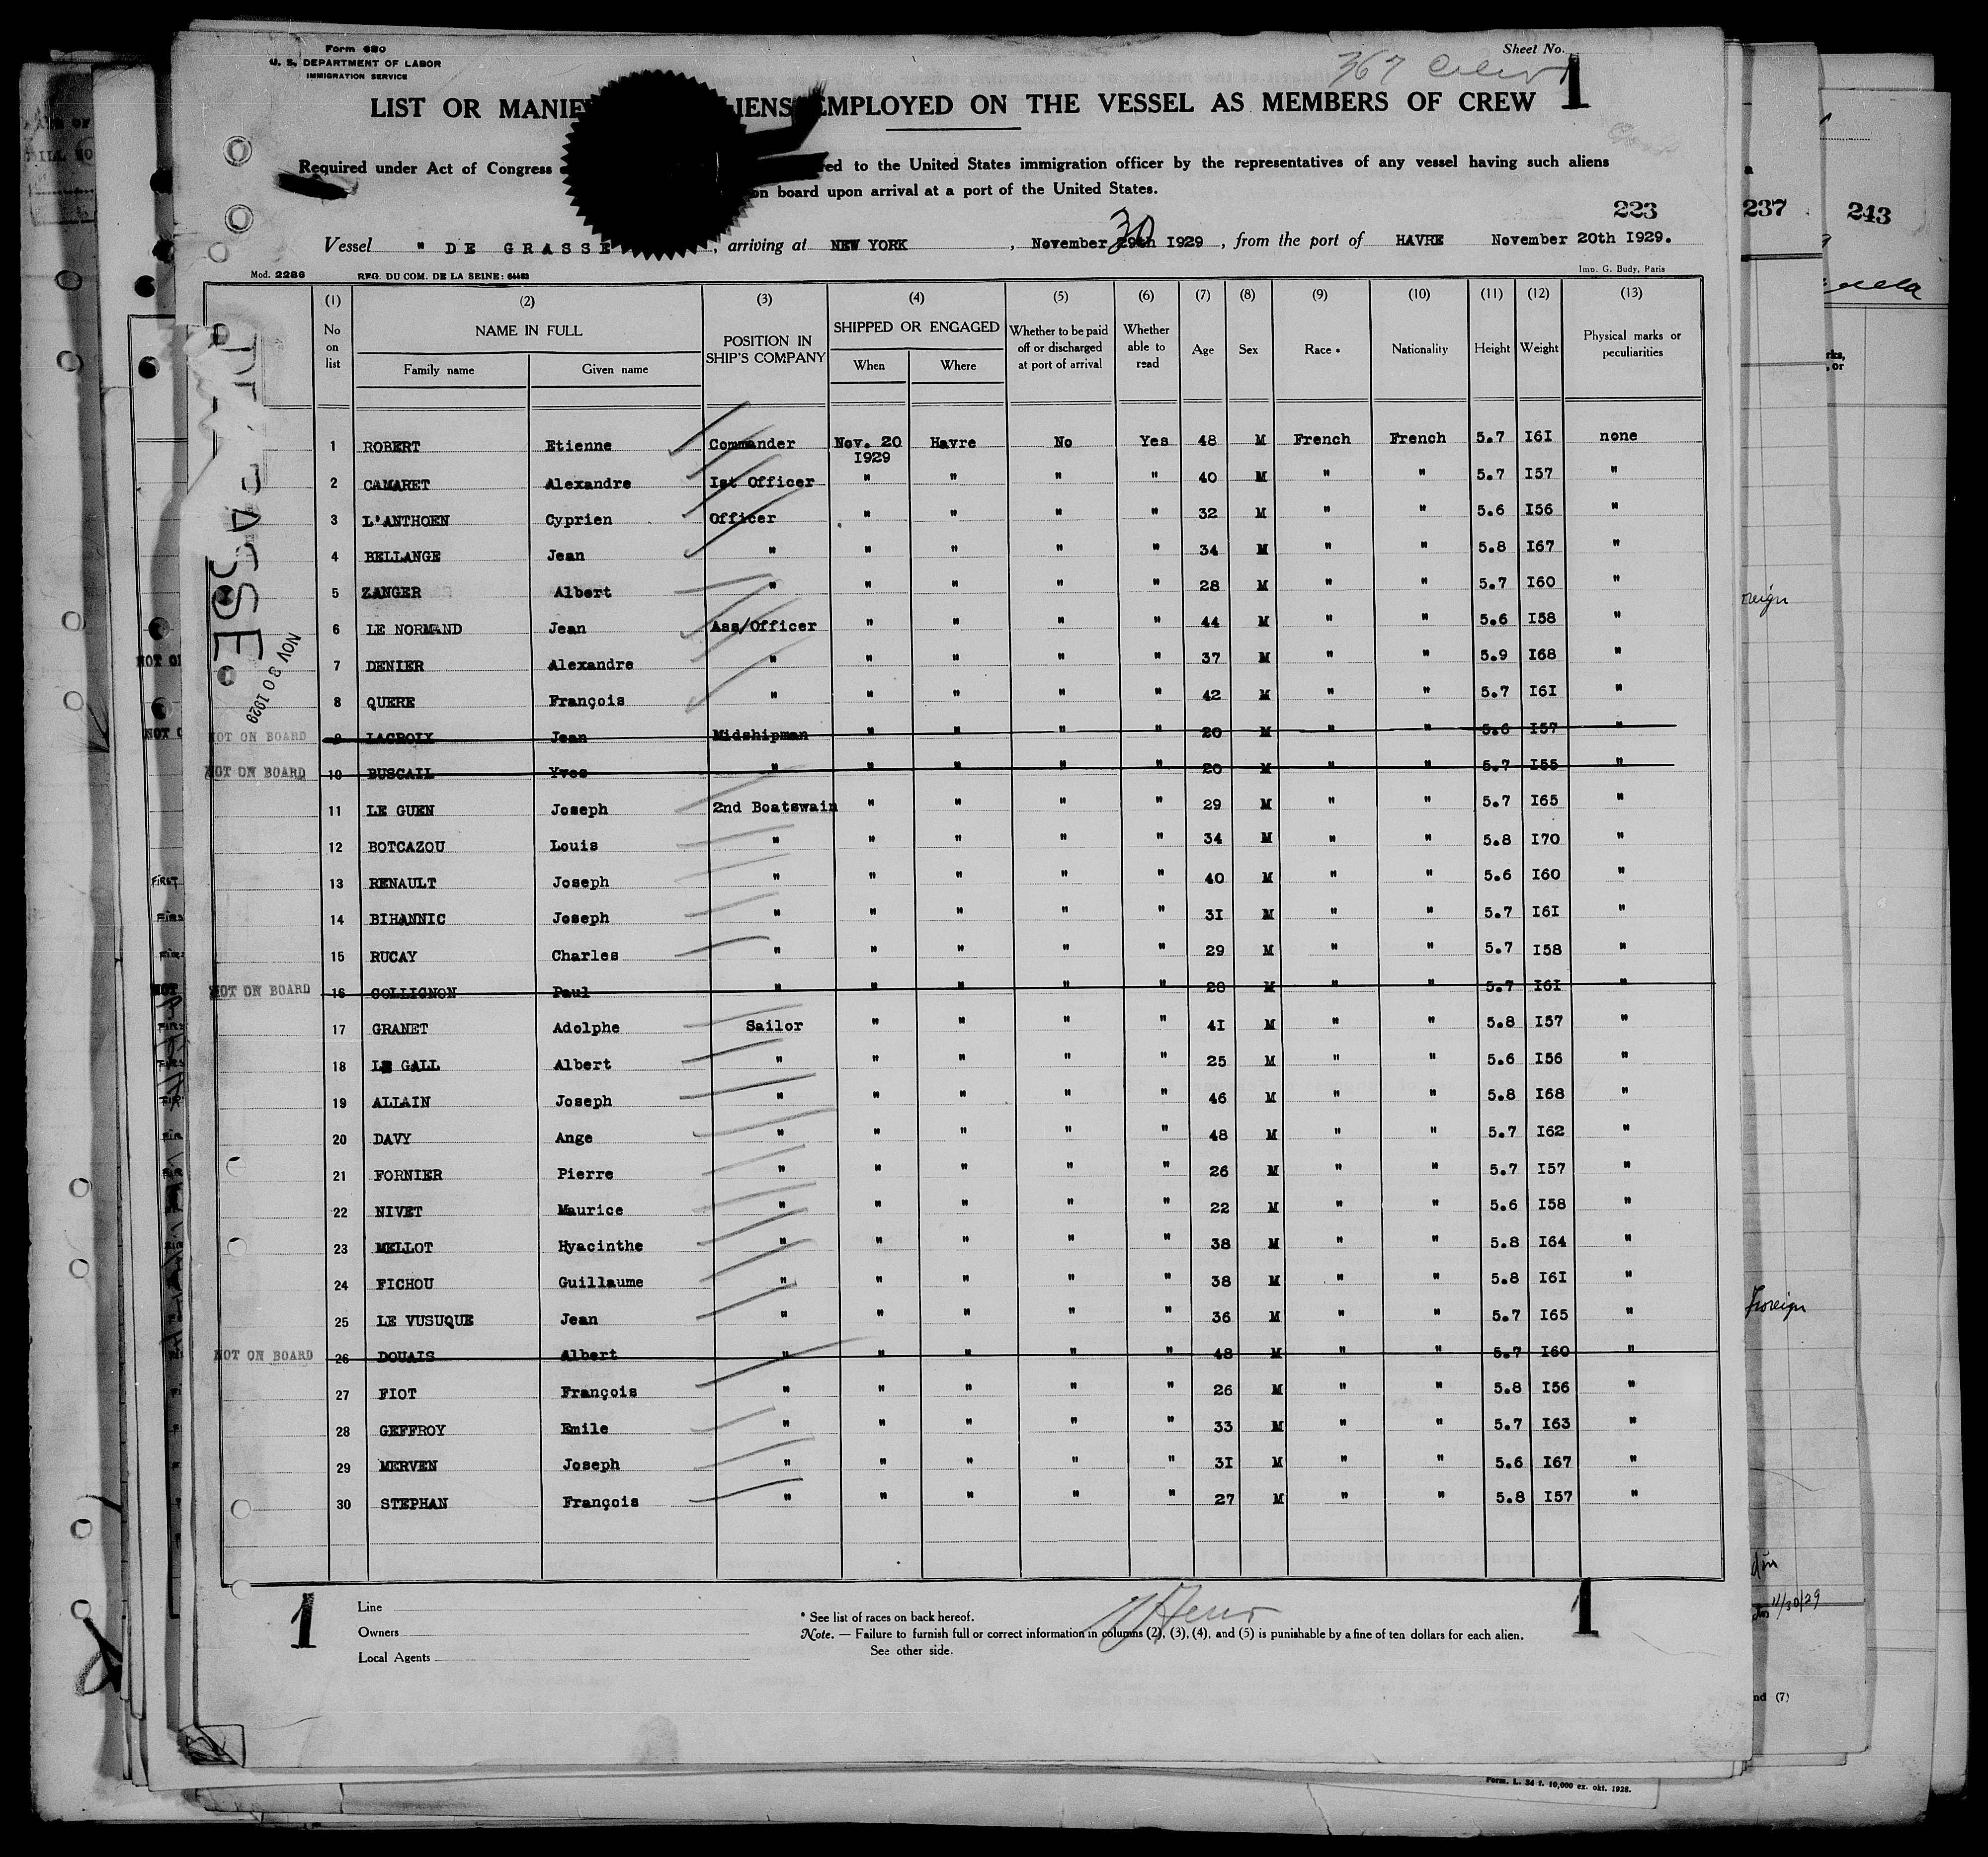 Form 680
U. S. DEPARTMENT OF LABOR
IMMIGRATION SERVICE
Sheet No. 1
367
LIST OR MANIF IENS EMPLOYED ON THE VESSEL AS MEMBERS OF CREW
Required under Act of Congress red to the United States immigration officer by the representatives of any vessel having such aliens
on board upon arrival at a port of the United States.
223
237
243
Vessel " DE GRASSE , arriving at NEW YORK , November 29th 1929 , from the port of HAVRE November 20th 1929.
30
Mod. 2286 REG. DU COM. DE LA SEINE: 64483 Imp. G. Budy, Paris
(1) (2) (3) (4) (5) (6) (7) (8) (9) (10) (11) (12) (13)
No on list NAME IN FULL Family name Given name POSITION IN SHIP'S COMPANY SHIPPED OR ENGAGED When Where Whether to be paid off or discharged at port of arrival Whether able to read Age Sex Race * Nationality Height Weight Physical marks or peculiarities
1 ROBERT Etienne Commander Nov. 20 1929 Havre No Yes 48 M French French 5.7 I6I none
2 CAMARET Alexandre Ist Officer " " " " 40 M " " 5.7 I57 "
3 L'ANTHOEN Cyprien Officer " " " " 32 M " " 5.6 I56 "
4 BELLANGE Jean " " " " " 34 M " " 5.8 I67 "
5 ZANGER Albert " " " " " 28 M " " 5.7 I60 "
6 LE NORMAND Jean Ass/Officer " " " " 44 M " " 5.6 I58 "
7 DENIER Alexandre " " " " " 37 M " " 5.9 I68 "
8 QUERE François " " " " " 42 M " " 5.7 I6I "
NOT ON BOARD 9 LACROIX Jean Midshipman " " " " 20 M " " 5.6 I57 "
NOT ON BOARD 10 BUSCAIL Yves " " " " " 20 M " " 5.7 I55 "
11 LE GUEN Joseph 2nd Boatswain " " " " 29 M " " 5.7 I65 "
12 BOTCAZOU Louis " " " " " 34 M " " 5.8 I70 "
13 RENAULT Joseph " " " " " 40 M " " 5.6 I60 "
14 BIHANNIC Joseph " " " " " 3I M " " 5.7 I6I "
15 RUCAY Charles " " " " " 29 M " " 5.7 I58 "
NOT ON BOARD 16 COLLIGNON Paul " " " " " 28 M " " 5.7 I6I "
17 GRANET Adolphe Sailor " " " " 4I M " " 5.8 I57 "
18 LE GALL Albert " " " " " 25 M " " 5.6 I56 "
19 ALLAIN Joseph " " " " " 46 M " " 5.8 I68 "
20 DAVY Ange " " " " " 48 M " " 5.7 I62 "
21 FORNIER Pierre " " " " " 26 M " " 5.7 I57 "
22 NIVET Maurice " " " " " 22 M " " 5.6 I58 "
23 MELLOT Hyacinthe " " " " " 38 M " " 5.8 I64 "
24 FICHOU Guillaume " " " " " 38 M " " 5.8 I6I "
25 LE VUSUQUE Jean " " " " " 36 M " " 5.7 I65 "
NOT ON BOARD 26 DOUAIS Albert " " " " " 48 M " " 5.7 I60 "
27 FIOT François " " " " " 26 M " " 5.8 I56 "
28 GEFFROY Emile " " " " " 33 M " " 5.7 I63 "
29 MERVEN Joseph " " " " " 3I M " " 5.6 I67 "
30 STEPHAN François " " " " " 27 M " " 5.8 I57 "
NOV 30 1929
Foreign
11/30/29
1
1
Line
Owners
Local Agents
* See list of races on back hereof.
Note. — Failure to furnish full or correct information in columns (2), (3), (4), and (5) is punishable by a fine of ten dollars for each alien.
See other side.
nd (7)
Form. L. 34 f. 10,000 ex. okt. 1928.